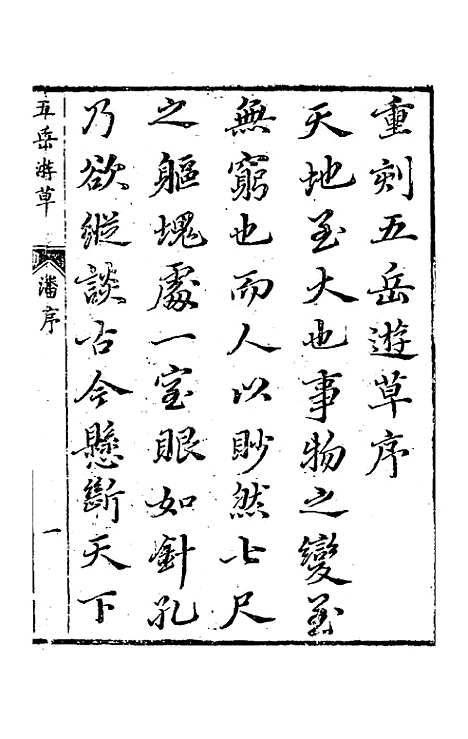 重刻五岳遊草序
天地至大也事物之變至
無窮也而人以眇然七尺
之軀塊處一室眼如針孔
乃欲縱談古今懸斷天下
五岳游草
潘序
一